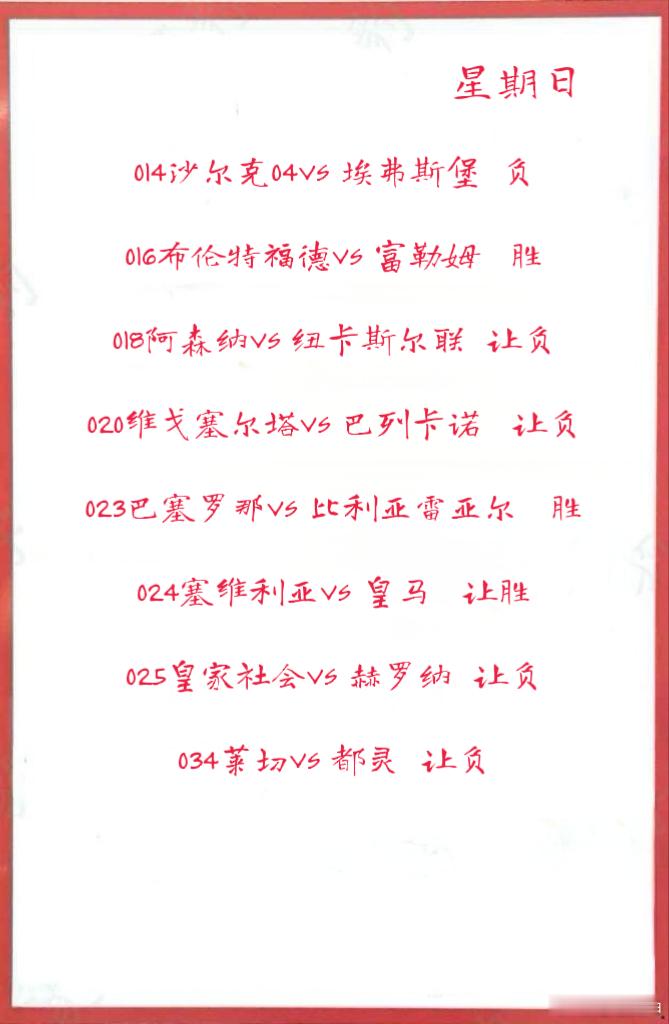 星期日
014沙尔克04vs 埃弗斯堡 负
016布伦特福德vs 富勒姆 胜
018阿森纳vs 纽卡斯尔联 让负
020维戈塞尔塔vs 巴列卡诺 让负
023巴塞罗那vs 比利亚雷亚尔 胜
024塞维利亚vs 皇马 让胜
025皇家社会vs 赫罗纳 让负
034莱切vs 都灵 让负